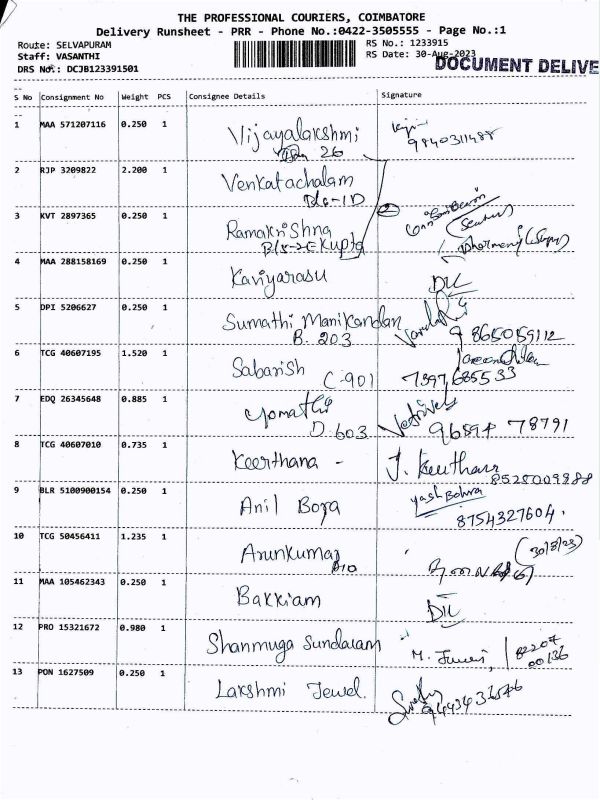 THE PROFESSIONAL COURIERS, COIMBATORE
Delivery Runsheet - PRR - Phone No.:0422-3505555 - Page No.:1
Route: SELVAPURAM RS No.: 1233915
Staff: VASANTHI RS Date: 30-Aug-2023
DOCUMENT DELIVE
DRS No.: DCJB123391501
S No Consignment No Weight PCS Consignee Details Signature
1 MAA 571207116 0.250 1 Vijayalakshmi
26 9840311488
2 RJP 3209822 2.200 1 Venkatachalam
3 KVT 2897365 0.250 1 Ramakrishna
Kupta
4 MAA 288158169 0.250 1 Kaviyarasu DIL
5 DPI 5206627 0.250 1 Sumathi Manikandan
B. 203 9865059112
6 TCG 40607195 1.520 1 Sabarish
C-901 7397685533
7 EDQ 26345648 0.885 1 Gomathi
D.603 78791
8 TCG 40607010 0.735 1 Keerthana - J. Keerthana
9 BLR 5100900154 0.250 1 Anil Bora Yash Bohra
8754327604.
10 TCG 50456411 1.235 1 Arunkumar (30/8/23)
11 MAA 105462343 0.250 1 Bakkiam DIL
12 PRO 15321672 0.980 1 Shanmuga Sundaram 82207
00136
13 PON 1627509 0.250 1 Lakshmi Jewel.